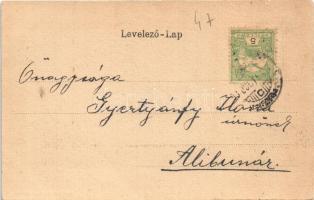 47
Levelező-Lap
5
Őnagysága
Gyertyánfy Ilona
úrnőnek
Alibunár.